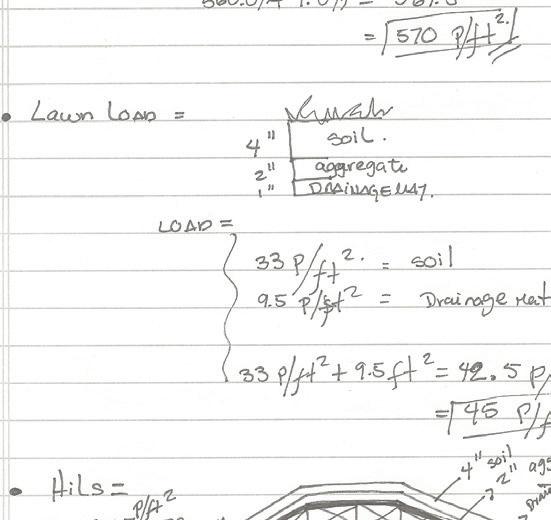 = 570 P/ft².
• Lawn Load =
4" soil.
2" aggregate
1" DRAINAGE MAT.
LOAD =
33 P/ft². = soil
9.5 P/ft² = Drainage Mat
33 P/ft² + 9.5 ft² = 42.5 P/
= 45 P/f
4" soil
• Hils = 2" agg
P/ft² Drain